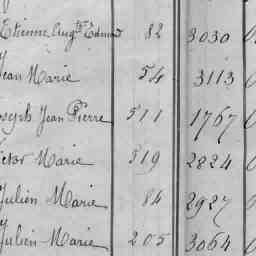 Etienne Aug.te Edmond 82 3030
Jean Marie 54 3113
Joseph Jean Pierre 511 1767
Victor Marie 319 2824
Julien Marie 84 2927
Julien Marie 205 3064